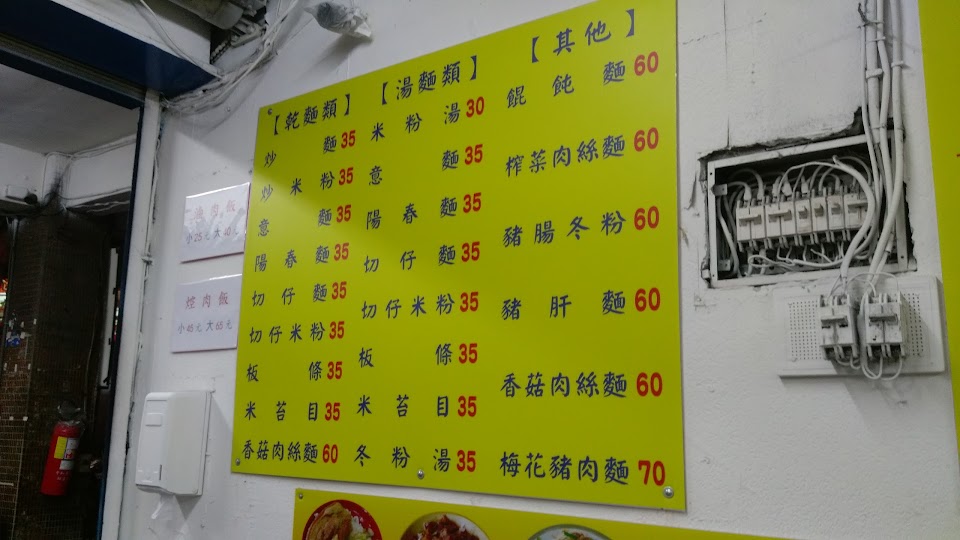 【乾麵類】
炒麵35
炒米粉35
意麵35
陽春麵35
切仔麵35
切仔米粉35
板條35
米苔目35
香菇肉絲麵60
【湯麵類】
米粉湯30
意麵35
陽春麵35
切仔麵35
切仔米粉35
板條35
米苔目35
冬粉湯35
【其他】
餛飩麵60
榨菜肉絲麵60
豬腸冬粉60
豬肝麵60
香菇肉絲麵60
梅花豬肉麵70
滷肉飯
小25元大40元
焢肉飯
小45元大60元